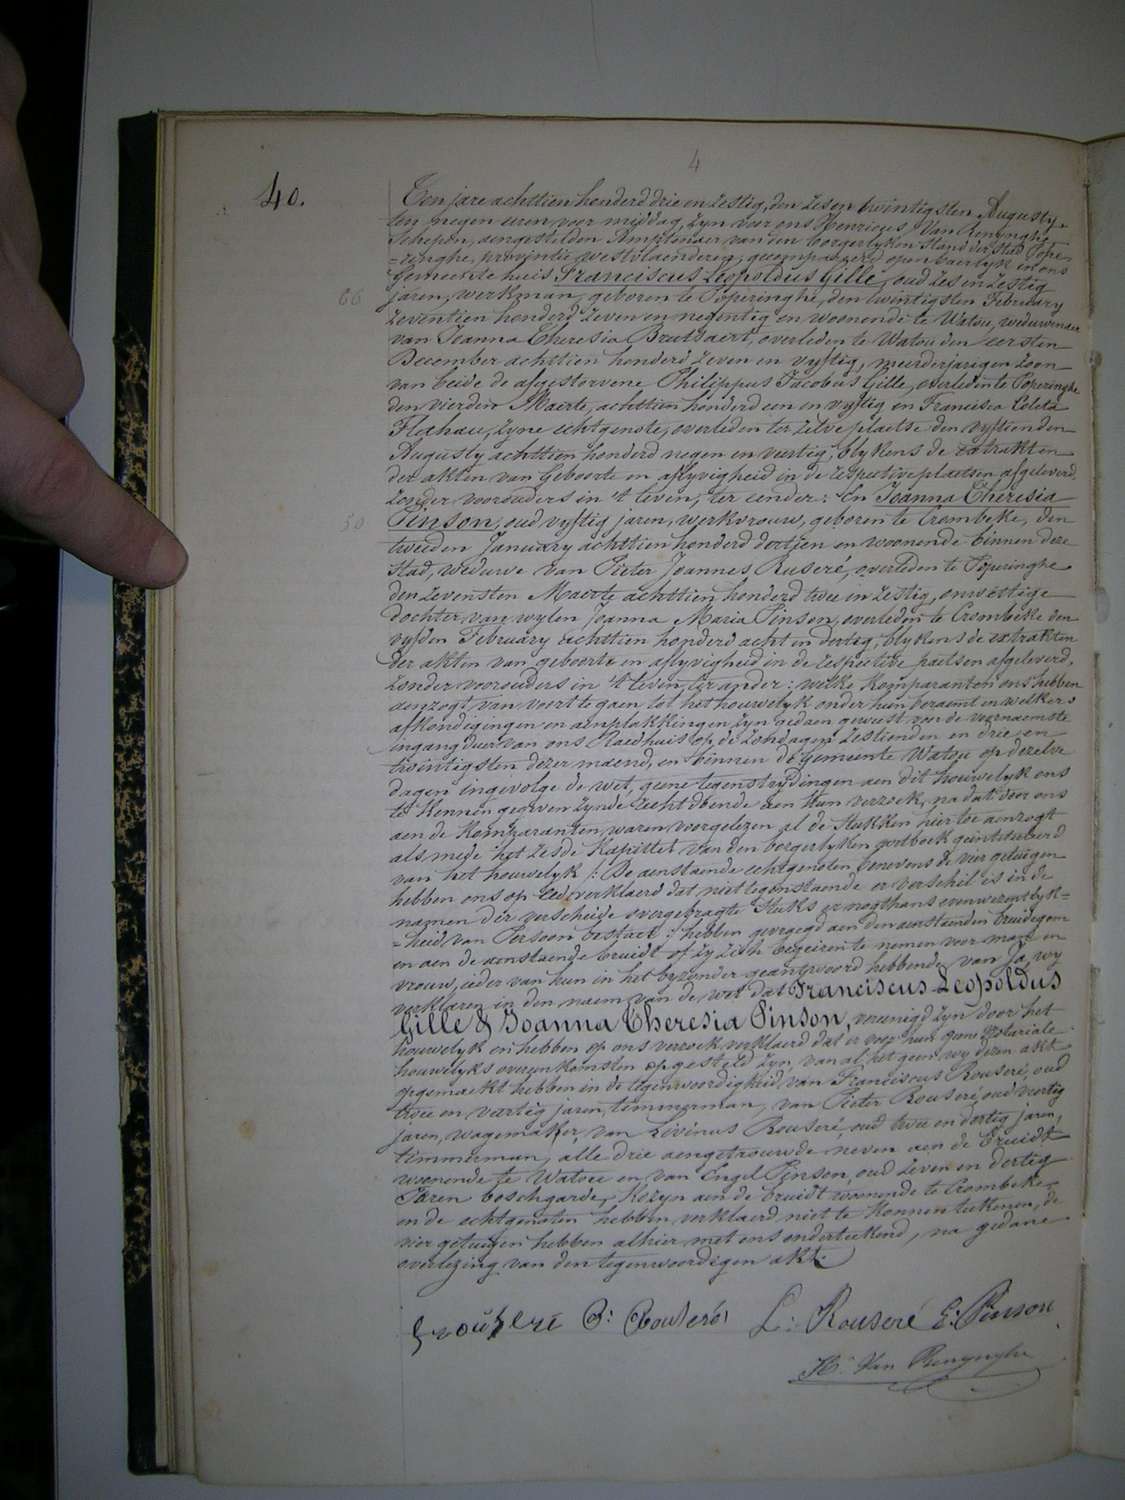 4
40.
Ten jare achttien honderd drie en zestig, den zes en twintigsten Augusty
ten negen uren voor middag, zyn voor ons Henricus Van Renynghe
Schepen, aengestelden Amptenaer van den borgerlyken Stand der Stad Pope-
=ringhe, provintie westvlaenderen, gecompareerd openbaerlyk in ons
Gemeente huis Franciscus Leopoldus Gille, oud zes en zestig
66
jaren, werkman, geboren te Poperinghe, den twintigsten February
zeventien honderd zeven en negentig en woonende te Watou, weduwenaer
van Joanna Theresia Brutsaert, overleden te Watou den eersten
December achttien honderd zeven en vyftig, meerderjarigen zoon
van beide de afgestorvene Philippus Jacobus Gille, overleden te Poperinghe
den vierden Maerte, achttien honderd een en vyftig en Francisca Coleta
Flahau, zyne echtgenote, overleden ter zelve plaetse den vyftienden
Augusty achttien honderd negen en veertig, blykens de extrakten
der akten van Geboorte en aflyvigheid in de respective plaetsen afgeleverd,
zonder voorouders in 't leven, ter eender: En Joanna Theresia
50
Pinson, oud vyftig jaren, werkvrouw, geboren te Crombeke, den
tweeden January achttien honderd dertien en woonende binnen deze
Stad, weduwe van Pieter Joannes Ruseré, overleden te Poperinghe
den zevensten Maerte achttien honderd twee en zestig, onwettige
dochter van wylen Joanna Maria Pinson, overleden te Crombeke den
vyfden February achttien honderd acht en dertig, blykens de extrakten
der akten van geboorte en aflyvigheid in de respective plaetsen afgeleverd,
zonder voorouders in 't leven, ter ander: welke Komparanten ons hebben
aenzogt van voort te gaen tot het houwelyk onder hun beraemt en welkers
afkondigingen en aenplakkingen zyn gedaen geweest voor de voornaemste
ingang duer van ons Raedhuis op de zondagen zestienden en drie en
twintigsten dezer maend, en binnen de gemeente Watou op dezelve
dagen ingevolge de wet, geene tegenstrydingen aen dit houwelyk ons
te kennen gegeven zynde, recht doende aen hun verzoek, na dat voor ons
aen de Komparanten, waren voorgelezen al de Stukken hier toe aenzogt
als mede het zesde Kapittel van den borgerlyken wetboek geintituleerd
van het houwelyk /: De aenstaende echtgenoten benevens de vier getuigen
hebben ons op Eed verklaerd dat niettegenstaende er verschil is in de
namen der verscheide overgebragte Stuks er nogthans evenwezentlyk=
=heid van Persoon bestaet :/ hebben gevraegd aen den aenstaenden bruidegom
en aen de aenstaende bruidt of zy zich begeiren te nemen voor man en
vrouw, ieder van hun in het byzonder geantwoord hebbende van Ja, wy
verklaren in den naem van de wet dat Franciscus Leopoldus
Gille & Joanna Theresia Pinson, vereenigd zyn door het
houwelyk en hebben op ons verzoek verklaerd dat er voor hun geene Notariale
houwelyks overeenkomsten opgesteld zyn, van al het geen wy dezen akt
opgemaekt hebben in de tegenwoordigheid van Franciscus Rouseré, oud
twee en veertig jaren, timmerman, van Pieter Rouseré, oud veertig
jaren, wagemaker, van Livinus Rouseré oud twee en dertig jaren,
timmerman, alle drie aengetrouwde neven aen de bruidt
woonende te Watou en van Engel Pinson, oud zeven en dertig
Jaren boschgarde, Kozyn aen de bruidt woonende te Crombeke
en de echtgenoten hebben verklaerd niet te konnen teekenen, de
vier getuigen hebben alhier met ons onderteekend, na gedane
overlezing van den tegenwoordigen akt.
P: Rouseré L: Rouseré E: Pinson
H. Van Renynghe